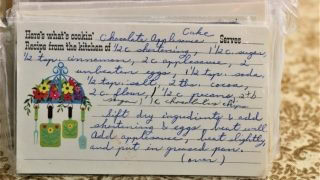 Cake
Here's what's cookin' Chocolate Applesauce Serves
Recipe from the kitchen of ½ c shortening, 1½ c. sugar,
½ tsp. cinnamon, 2 c applesauce, 2
unbeaten eggs, 1½ tsp. soda,
½ tsp. salt, 2 tbs. cocoa,
2 c flour, ½ c. pecans,
sugar, 1 c chocolate chips
Sift dry ingredients & add
shortening & eggs. beat well
Add applesauce, beat slightly
and put in greased pan.
(over)